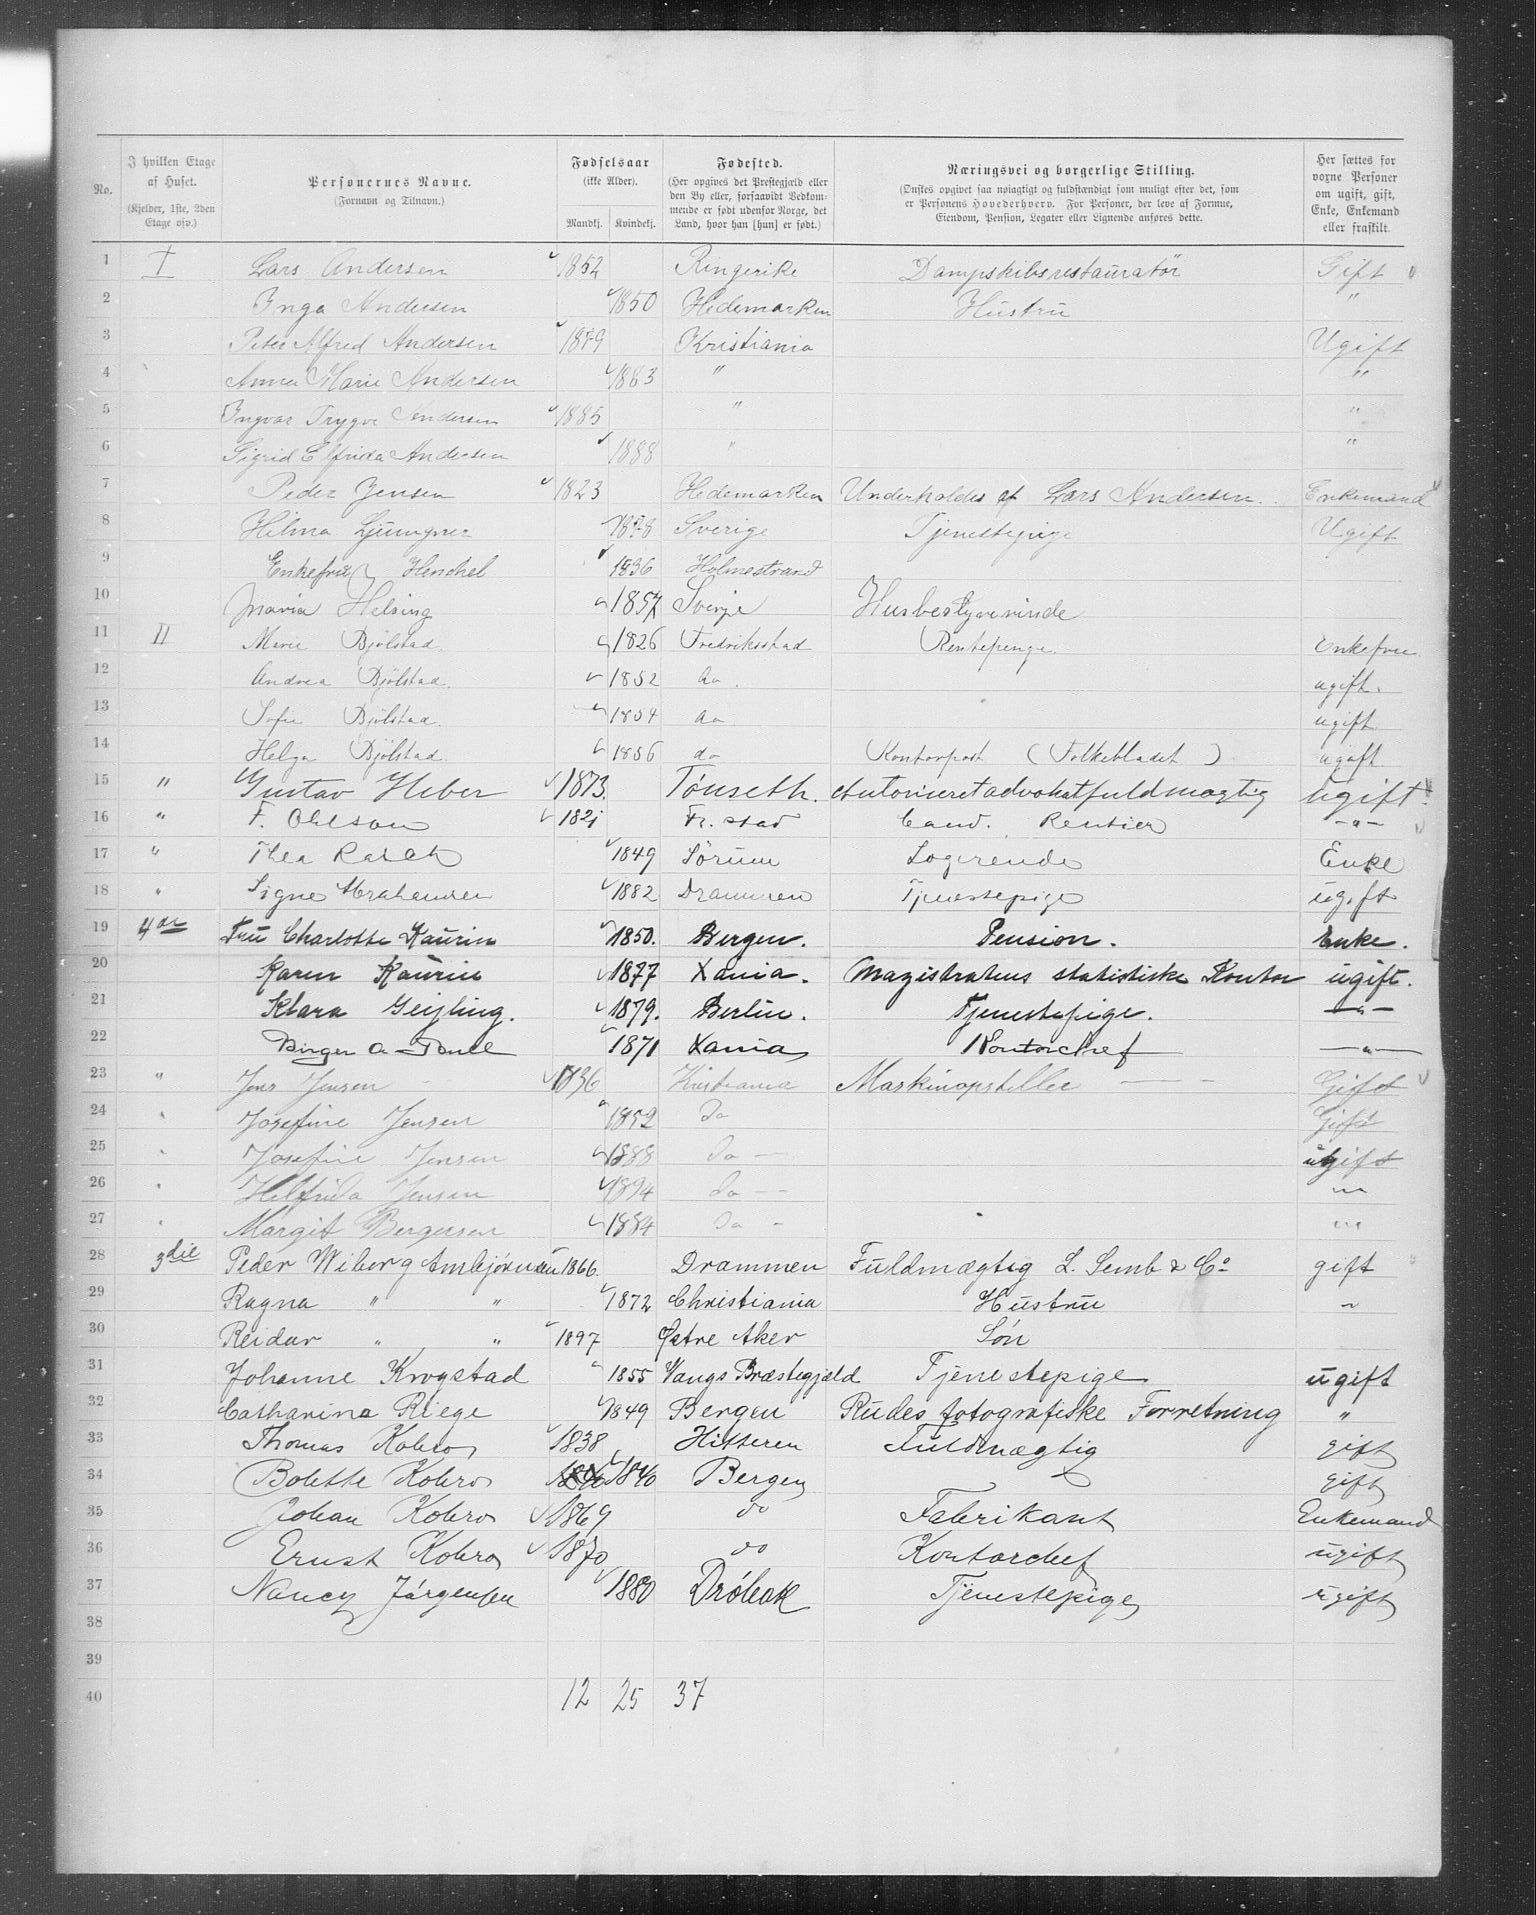 No. I hvilken Etage af Huset. (Kjelder, 1ste, 2den Etage osv.) Personernes Navne. (Fornavn og Tilnavn.) Fødselsaar (ikke Alder). Mandkj. Kvindekj. Fødested. (Her opgives det Prestegjæld eller den By eller, forsaavidt Vedkommende er født udenfor Norge, det Land, hvor han [hun] er født.) Næringsvei og borgerlige Stilling. (Ønskes opgivet saa nøiagtigt og fuldstændigt som muligt efter det, som er Personens Hovederhverv. For Personer, der leve af Formue, Eiendom, Pension, Legater eller Lignende anføres dette. Her sættes for voxne Personer om ugift, gift, Enke, Enkemand eller fraskilt.
1 I Lars Andersen 1852 Ringerike Dampskibsrestauratør Gift
2 Inga Andersen 1850 Hedemarken Hustru "
3 Peter Alfred Andersen 1879 Kristiania Ugift
4 Anna Marie Andersen 1883 " "
5 Ingvar Trygve Andersen 1885 " "
6 Sigrid Elfrida Andersen 1888 " "
7 Peder Jensen 1823 Hedemarken Underholdes af Lars Andersen. Enkemand
8 Hilma Ljungner 1878 Sverige Tjenestepige Ugift
9 Enkefru Henchel 1836 Holmestrand
10 Maria Helsing 1857 Sverje Husbestyrerinde
11 II Marie Bjölstad 1826 Fredriksstad Rentepenge. Enkefru
12 Andrea Bjölstad. 1852 do. ugift.
13 Sofie Bjölstad. 1854 do ugift
14 Helga Bjölstad. 1856 do Kontorpost (Folkebladet) ugift
15 " Gustav Heber 1873. Tønseth. Autoriseret advokatfuldmægtig ugift.
16 " F. Ohlson 1821 Fr. stad Cand. Rentier -"-
17 " Thea Rasch 1849 Sørum Logerende Enke
18 " Signe Abrahamsen 1882 Drammen Tjenestepige ugift
19 4de Fru Charlotte Kaurin 1850. Bergen. Pension. Enke.
20 Karen Kaurin 1877 Xania. Magistratens statistiske Kontor ugift.
21 Klara Geijling. 1879. Berlin. Tjenestepige. -"-
22 Birger 1871 Xania Kontorchef -"-
23 " Jens Jensen 1836 Kristiania Maskinopstiller Gift
24 " Josefine Jensen 1852 Do Gift
25 " Josefine Jensen 1888 Do ugift
26 " Helfrida Jensen 1894 Do "
27 " Margit Bergersen 1884 Do "
28 3die Peder Wiborg Ambjørnsen 1866. Drammen Fuldmægtig L. Semb & Co gift
29 Ragna " " 1872 Christiania Hustru "
30 Reidar " " 1897 Østre Aker Søn
31 Johanne Krogstad 1855 Vangs Præstegjæld Tjenestepige ugift
32 Catharina Riege 1849 Bergen Rudes fotografiske Forretning "
33 Thomas Kobro 1838 Hitteren Fuldmægtig gift
34 Bolette Kobro 1840 Bergen gift
35 Johan Kobro 1869 do Fabrikant Enkemand
36 Ernst Kobro 1870 do Kontorchef ugift
37 Nancy Jørgensen 1880 Drøbak Tjenestepige ugift
38
39
40 12 25 37